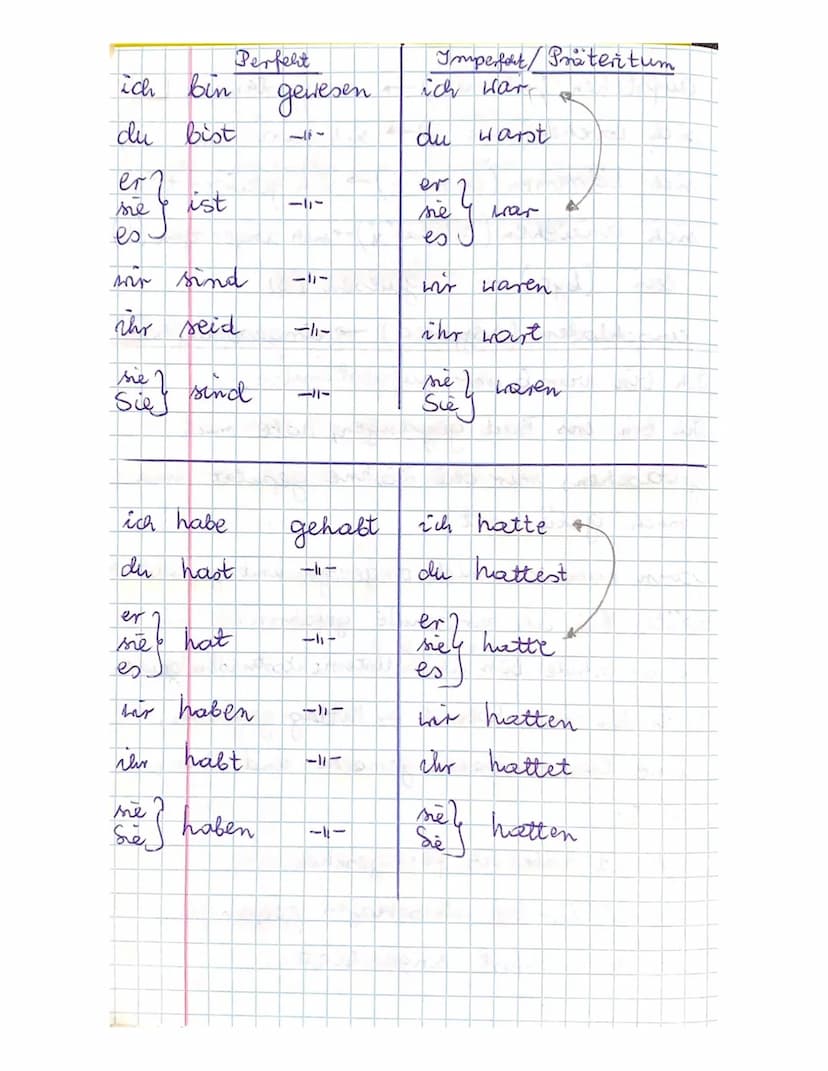 Perfekt Imperfekt/Präteritum
ich bin gewesen ich war
du bist -||- du warst
er er
sie ist -||- sie war
es es
wir sind -||- wir waren
ihr seid -||- ihr wart
sie sie
Sie sind -||- Sie waren
ich habe gehabt ich hatte
du hast -||- du hattest
er er
sie hat -||- sie hatte
es es
wir haben -||- wir hatten
ihr habt -||- ihr hattet
sie sie
Sie haben -||- Sie hatten